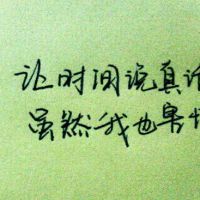 让时间说真
虽然我也害